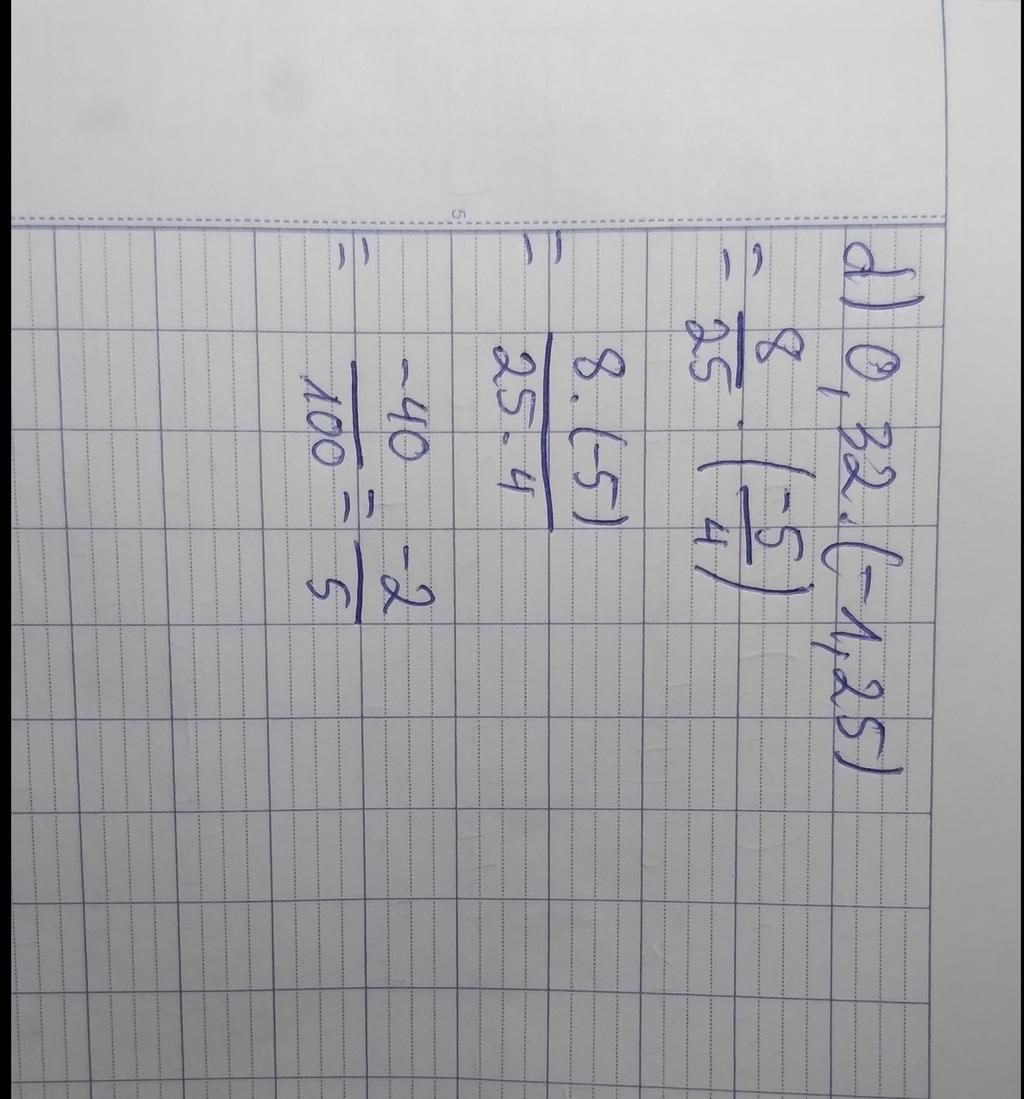 d) 0,32.(-1,25)
= 8/25 . (-5/4)
= 8.(-5)/25.4
= -40/100 = -2/5
5